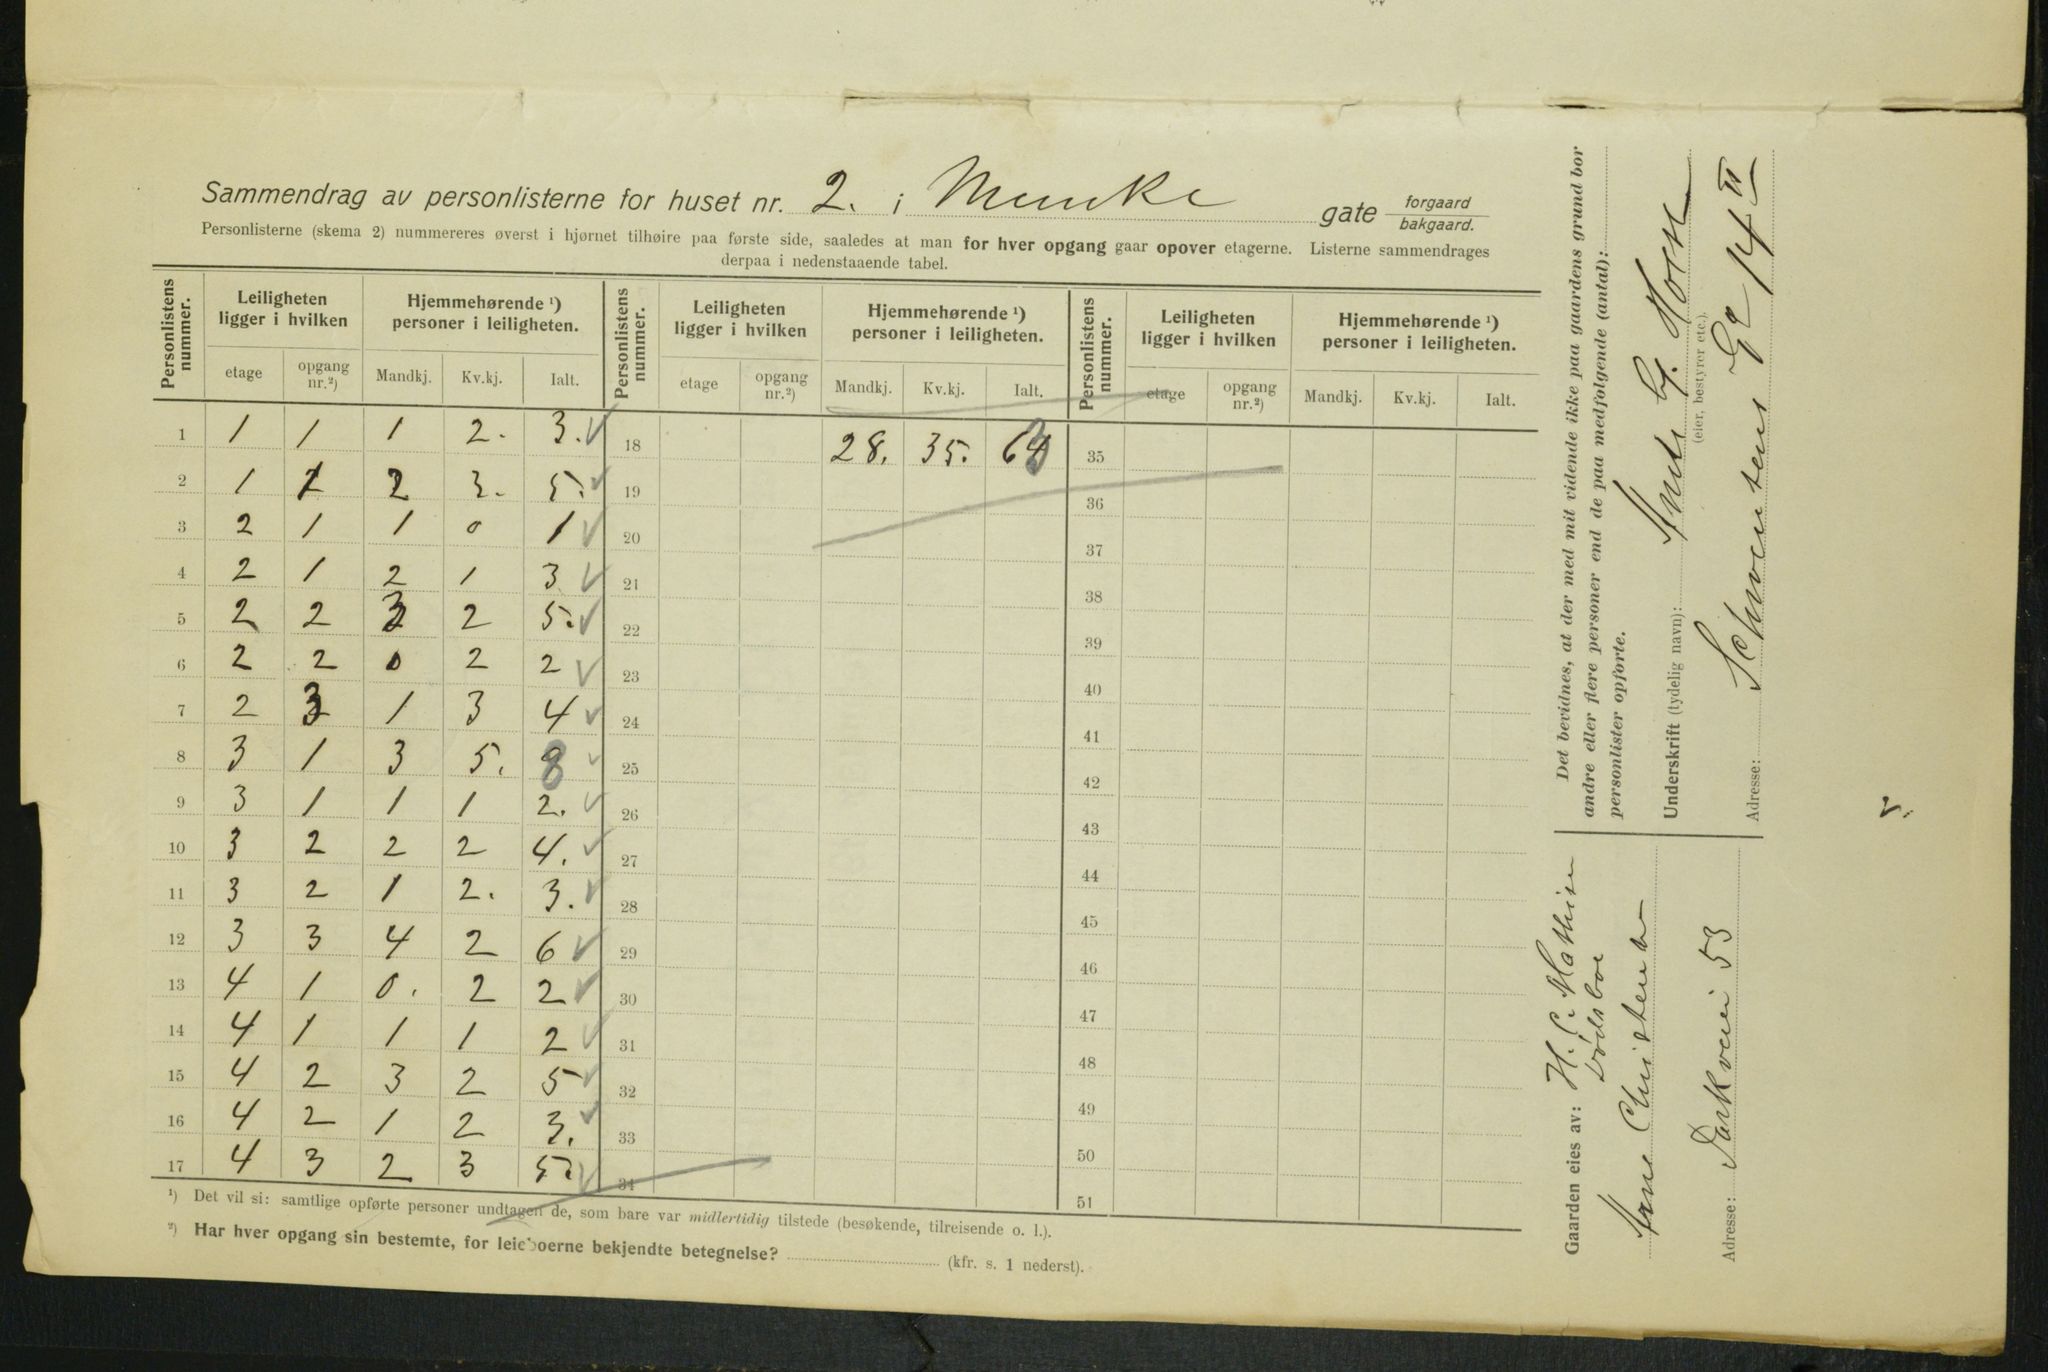 Sammendrag av personlisterne for huset nr. 2. i Munke gate forgaard bakgaard.
Personlisterne (skema 2) nummereres øverst i hjørnet tilhøire paa første side, saaledes at man for hver opgang gaar opover etagerne. Listerne sammendrages
derpaa i nedenstaaende tabel.
Personlistens nummer. Leiligheten ligger i hvilken Hjemmehørende ¹) personer i leiligheten. Personlistens nummer. Leiligheten ligger i hvilken Hjemmehørende ¹) personer i leiligheten. Personlistens nummer. Leiligheten ligger i hvilken Hjemmehørende ¹) personer i leiligheten.
etage opgang nr.²) Mandkj. Kv.kj. Ialt. etage opgang nr.²) Mandkj. Kv.kj. Ialt. etage opgang nr.²) Mandkj. Kv.kj. Ialt.
1 1 1 1 2. 3. 18 28. 35. 63 35
2 1 2 2 3. 5. 19 36
3 2 1 1 0 1 20 37
4 2 1 2 1 3 21 38
5 2 2 3 2 5. 22 39
6 2 2 0 2 2 23 40
7 2 3 1 3 4 24 41
8 3 1 3 5. 8 25 42
9 3 1 1 1 2. 26 43
10 3 2 2 2 4. 27 44
11 3 2 1 2. 3. 28 45
12 3 3 4 2 6 29 46
13 4 1 0. 2 2 30 47
14 4 1 1 1 2 31 48
15 4 2 3 2 5 32 49
16 4 2 1 2 3. 33 50
17 4 3 2 3 5. 34 51
¹) Det vil si: samtlige opførte personer undtagen de, som bare var midlertidig tilstede (besøkende, tilreisende o. l.).
²) Har hver opgang sin bestemte, for leieboerne bekjendte betegnelse? (kfr. s. 1 nederst).
Det bevidnes, at der med mit vidende ikke paa gaardens grund bor
andre eller flere personer end de paa medfølgende (antal):
personlister opførte.
Underskrift (tydelig navn):
(eier, bestyrer etc.).
Adresse: Schwensens Gt 14 II
Gaarden eies av: H. C. Mathisen
Dødsbo
Arne Christensen
Adresse: Parkveien 53
v.